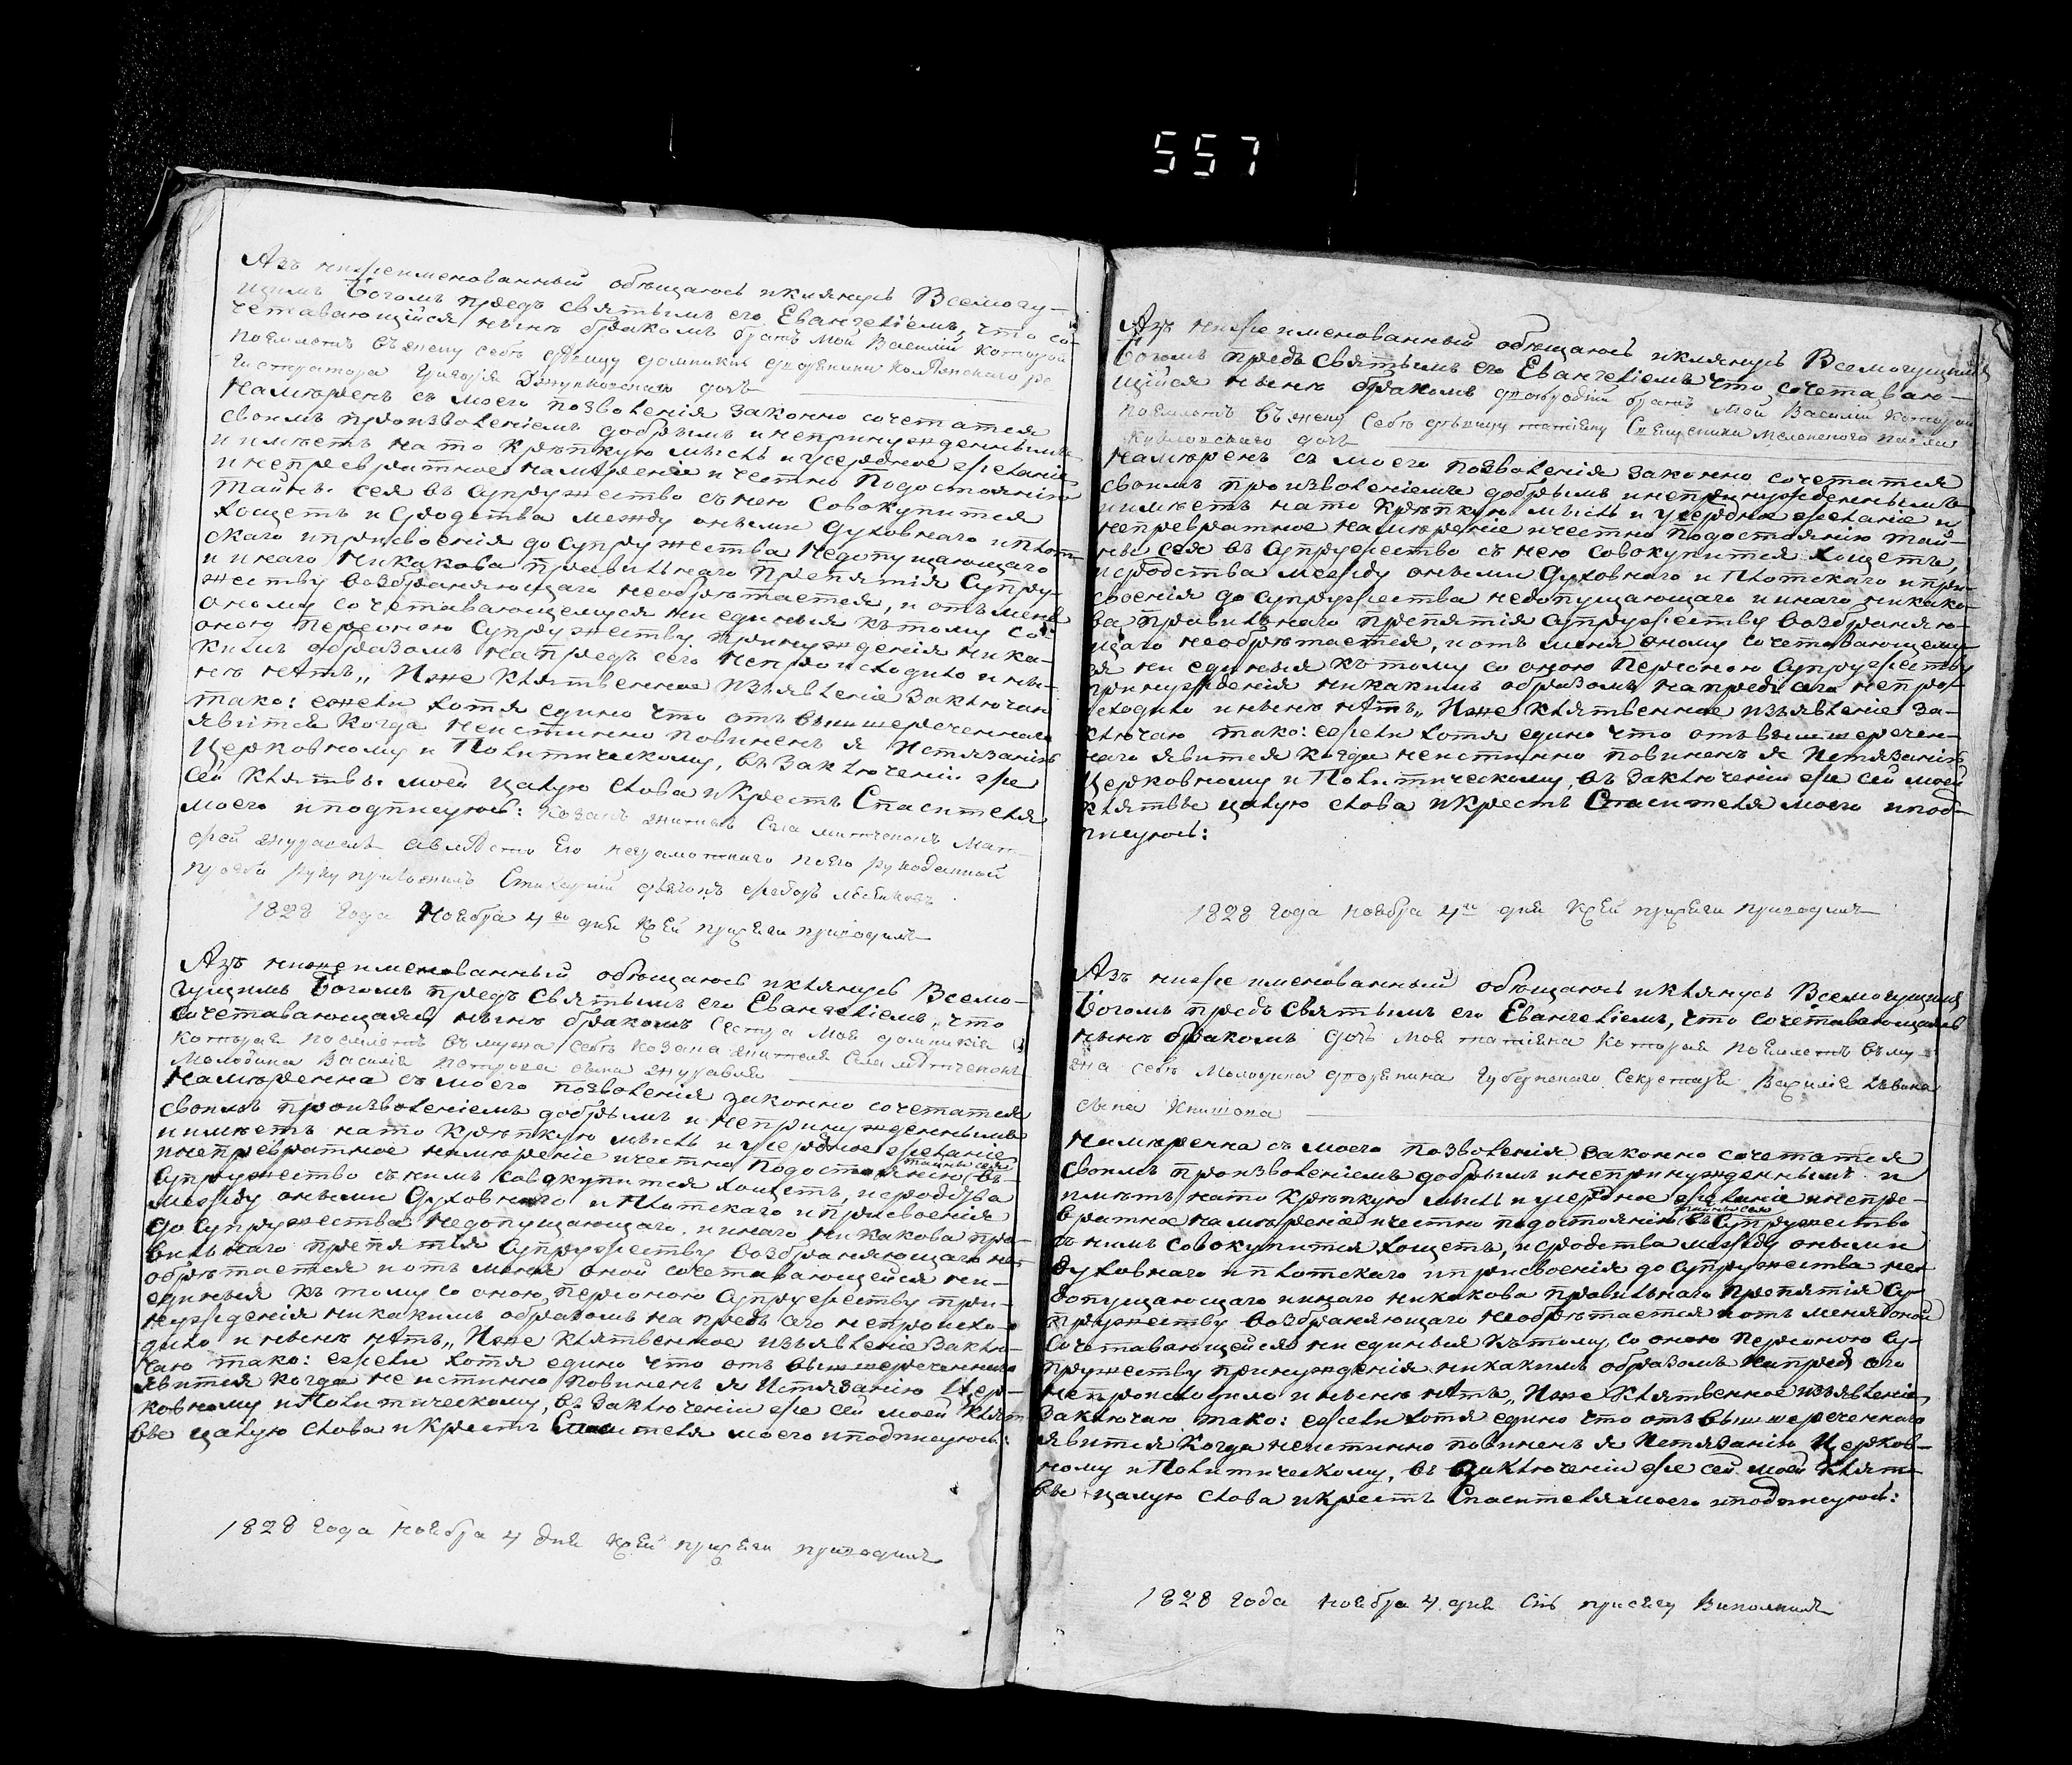 557
Азъ нижеименованный обѣщаюсь и клянусь Всемогу-
щимъ Богомъ предъ святымъ его Евангеліемъ, что со-
четавающійся нынѣ бракомъ братъ мой Василій которой
поемлетъ въ жену себѣ девицу домникію
Григорія дочь
Намѣренъ съ моего позволенія законно сочетатся
своимъ произволеніемъ добрымъ и непринужденнымъ
и имѣетъ на то крѣпкую мысль и усердное желаніе
и непревратное намѣреніе и честно подостоянію
тайны сея въ супружество съ нею совокупится
хощетъ и сродства между оными духовнаго и плот-
скаго и присвоенія до супружества недопущающаго
и инаго никакова правильнаго препятія супру-
жеству возбраняющаго необрѣтается, и отъ меня
оному сочетавающемуся ни единыя къ тому со
оною персоною супружеству принужденія ника-
кимъ образомъ напредъ сего непроисходило и ны-
нѣ нѣтъ„ Иже клятвенное изъявленіе заключаю
тако: ежели хотя едино что отъ вышшереченнаго
явится когда неистинно повиненъ я Истязанію
Церковному и Политическому, въ заключеніи же
сей клятвы моей цалую слова и крестъ Спасителя
моего и подписуюсь: козакъ житель села Мат-
фей журавель а вместо его неграмотнаго по его рукоданной
прозби руку приложилъ Стихарній дьячокъ Федоръ
1828 года Ноября 4го дня к сей присяги приводилъ
Азъ нижеименованный обѣщаюсь и клянусь Всемо-
гущимъ Богомъ предъ святымъ его Евангеліемъ, что
сочетавающаясь нынѣ бракомъ сестра моя домникія
которая поемлетъ въ мужа себѣ козака жителя села
молодика Василія Петрова сына журавля
Намѣренна съ моего позволенія законно сочетатся
своимъ произволеніемъ добрымъ и непринужденнымъ
и имѣетъ на то крѣпкую мысль и усердное желаніе
и непревратное намѣреніе и честно подостоянію тайны сея въ
супружество съ нимъ совокупится хощетъ, и сродства
между оными духовнаго и плотскаго и присвоенія
до супружества недопущающаго и инаго никакова пра-
вильнаго препятія супружеству возбраняющаго не
обрѣтается и отъ меня оной сочетавающейся ни-
единыя къ тому со оною персоною супружеству при-
нужденія никакимъ образомъ напредъ сего непроисхо-
дило и нынѣ нѣтъ„ Иже клятвенное изъявленіе заклю-
чаю тако: ежели хотя едино что отъ вышшереченнаго
явится когда неистинно повиненъ я Истязанію Цер-
ковному и Политическому, въ заключеніи же сей моей клят-
вы цалую слова и крестъ Спасителя моего и подписуюсь:
1828 года Ноября 4 дня к сей присяги приводилъ
Азъ нижеименованный обѣщаюсь и клянусь Всемогущимъ
Богомъ предъ святымъ его Евангеліемъ что сочетаваю-
щійся нынѣ бракомъ двоюродній братъ мой Василій которой
поемлетъ въ жену себѣ девицу татіяну священика
дочь
Намѣренъ съ моего позволенія законно сочетатся
своимъ произволеніемъ добрымъ и непринужденнымъ
и имѣетъ на то крѣпкую мысль и усердное желаніе и
непревратное намѣреніе и честно подостоянію тай-
ны сея въ супружество съ нею совокупится хощетъ,
и сродства между оными духовнаго и плотскаго и при-
своенія до супружества недопущающаго и инаго никако-
ва правильнаго препятія супружеству возбраняю-
щаго необрѣтается, и отъ меня оному сочетавающему-
ся ни единыя къ тому со оною персоною супружеству
принужденія никакимъ образомъ напредъ сего непро-
исходило и нынѣ нѣтъ„ Иже клятвенное изъявленіе за-
ключаю тако: ежели хотя едино что отъ вышшеречен-
наго явится когда неистинно повиненъ я Истязанію
Церковному и Политическому, въ заключеніи же сей моей
клятвы цалую слова и крестъ Спасителя моего и под-
писуюсь:
1828 года Ноября 4го дня к сей присяги приводилъ
Азъ нижеименованный обѣщаюсь и клянусь Всемогущимъ
Богомъ предъ святымъ его Евангеліемъ, что сочетавающаясь
нынѣ бракомъ дочъ моя татіяна которая поемлетъ въ му-
жа себѣ молодика дворянина Губернскаго Секретаря Василія
сына
Намѣренна съ моего позволенія законно сочетатся
своимъ произволеніемъ добрымъ и непринужденнымъ и
имѣетъ на то крѣпкую мысль и усердное желаніе и непре-
вратное намѣреніе и честно подостоянію тайны сея въ супружество
съ нимъ совокупится хощетъ, и сродства между оными
духовнаго и плотскаго и присвоенія до супружества не
допущающаго и инаго никакова правильнаго препятія су-
пружеству возбраняющаго необрѣтается и отъ меня оной
сочетавающейся ни единыя къ тому со оною персоною су-
пружеству принужденія никакимъ образомъ напредъ сего
непроисходило и нынѣ нѣтъ„ Иже клятвенное изъявленіе
заключаю тако: ежели хотя едино что отъ вышшереченнаго
явится когда неистинно повиненъ я Истязанію Церков-
ному и Политическому, въ заключеніи же сей моей клят-
вы цалую слова и крестъ Спасителя моего и подписуюсь:
1828 года Ноября 4 дня сію присягу виполнилъ